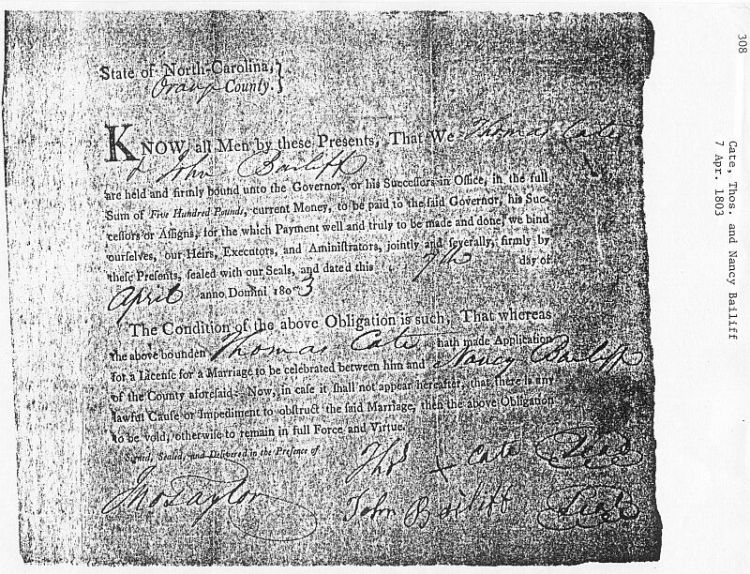 308
Cate, Thos. and Nancy Bailiff
7 Apr. 1803
State of North-Carolina,
Orange County.
KNOW all Men by these Presents, That We Thomas Cate
& John Bailiff
are held and firmly bound unto the Governor, or his Successors in Office, in the full
Sum of Five Hundred Pounds, current Money, to be paid to the said Governor, his Suc-
cessors or Assigns, for the which Payment well and truly to be made and done, we bind
ourselves, our Heirs, Executors, and Aministrators, jointly and severally, firmly by
these Presents, sealed with our Seals, and dated this 7th day of
April anno Domini 1803
The Condition of the above Obligation is such, That whereas
the above bounden Thomas Cate hath made Application
for a License for a Marriage to be celebrated between him and Nancy Bailiff
of the County aforesaid: Now, in case it shall not appear hereafter, that there is any
lawful Cause or Impediment to obstruct the said Marriage, then the above Obligation
to be void, otherwise to remain in full Force and Virtue.
Sealed, and Delivered in the Presence of
Thos x Cate Seal
Jno Taylor
John Bailiff Seal